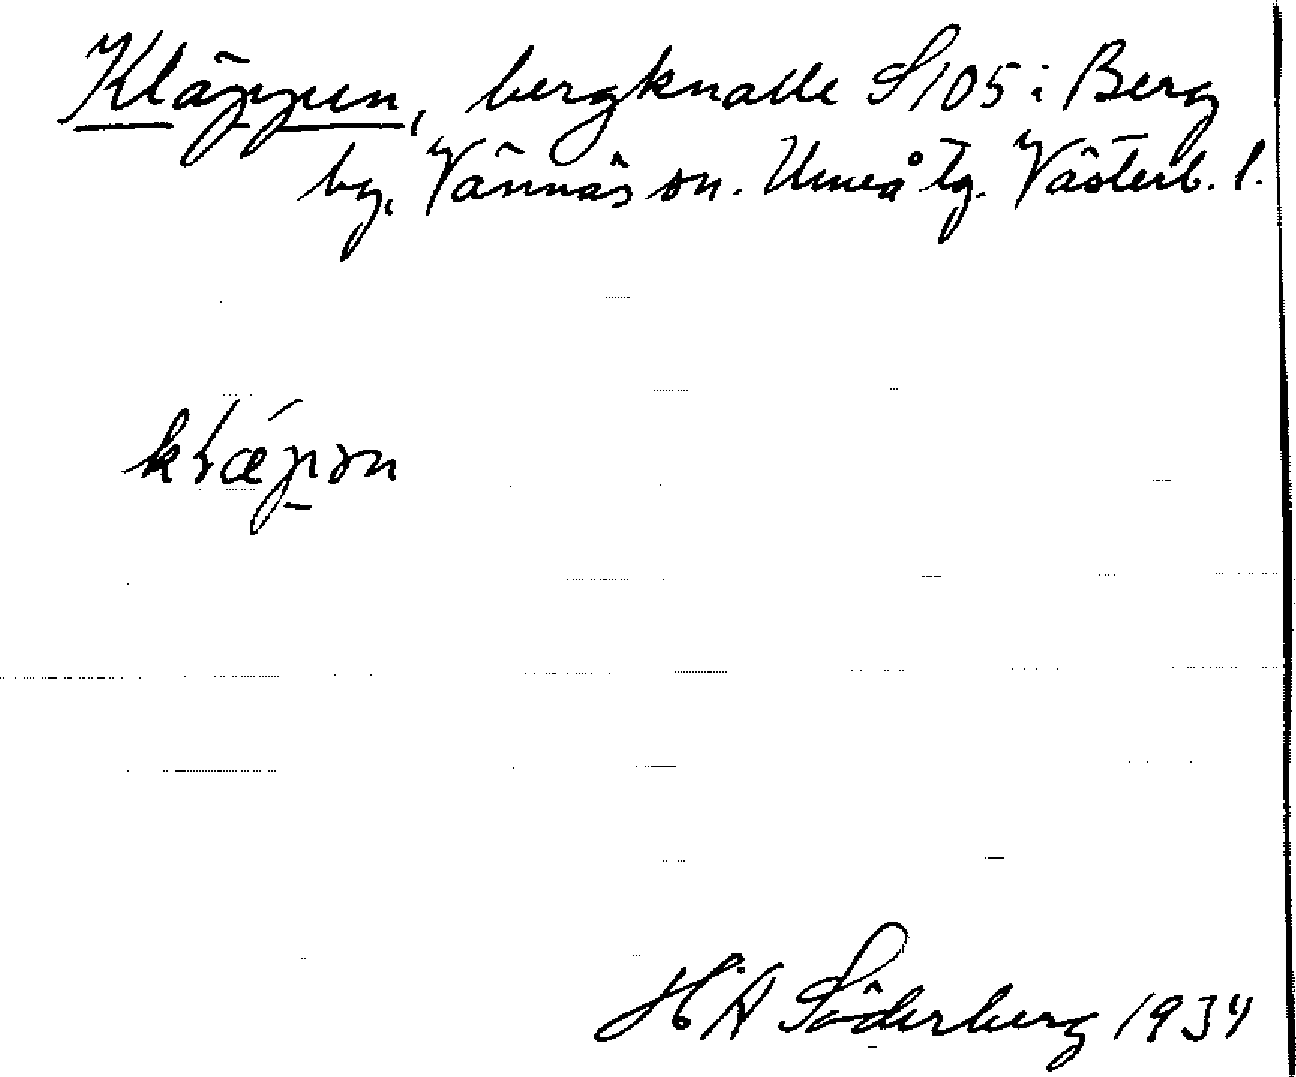 Kläppen, bergknalle S 105 i Berg
by, Vännäs sn. Umeå tg. Västerb. l.
klæ̀pən
H A Söderberg 1934